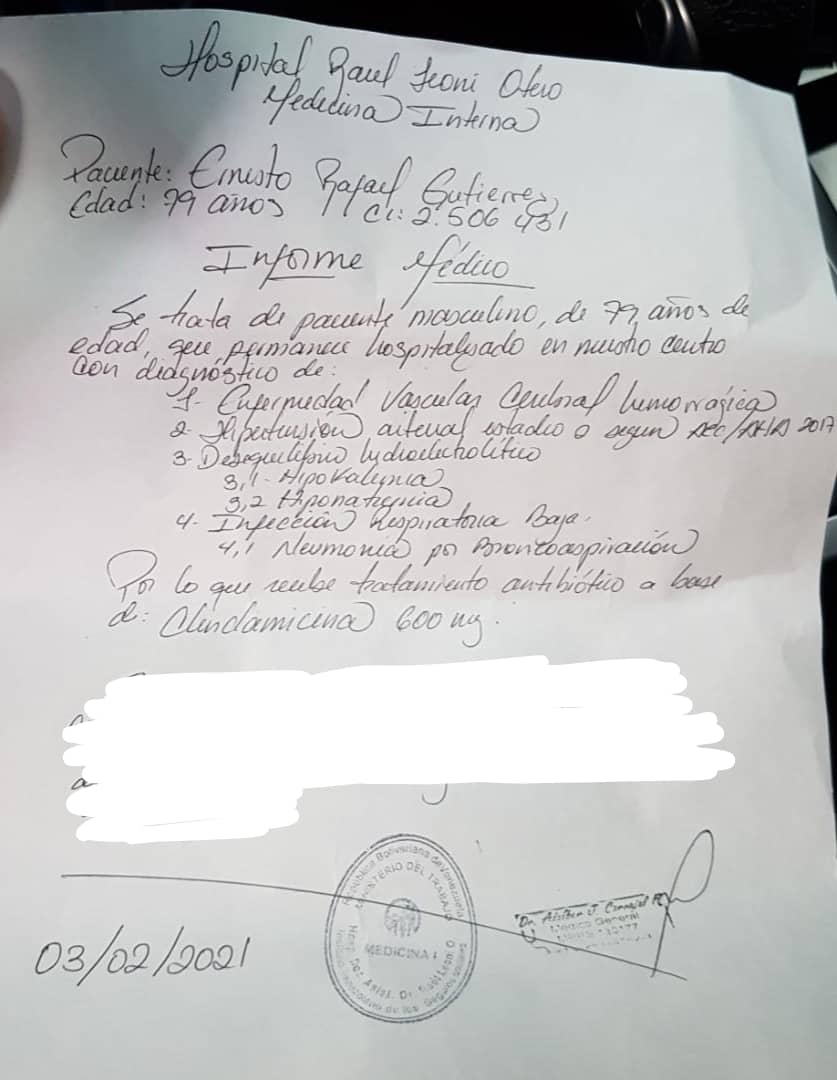 Hospital Raul Leoni Otero
Medicina Interna
Paciente: Ernesto Rafael Gutierrez
Edad: 79 años CI: 2.506 431
Informe Médico
Se trata de paciente masculino, de 79 años de
edad, que permanece hospitalizado en nuestro centro
con diagnóstico de:
1- Enfermedad Vascular Cerebral hemorrágica
2- Hipertensión arterial estadio 0 segun AEC/AHA 2017
3- Desequilibrio hydroelectrolítico
3,1- Hipokalemia
3,2 Hiponatremia
4- Infección Respiratoria Baja.
4,1 Neumonia por Broncoaspiración
Por lo que recibe tratamiento antibiótico a base
d: Clindamicina 600 mg.
03/02/2021
República Bolivariana de Venezuela
MINISTERIO DEL TRABAJO
MEDICINA I
Dr.
Médico General